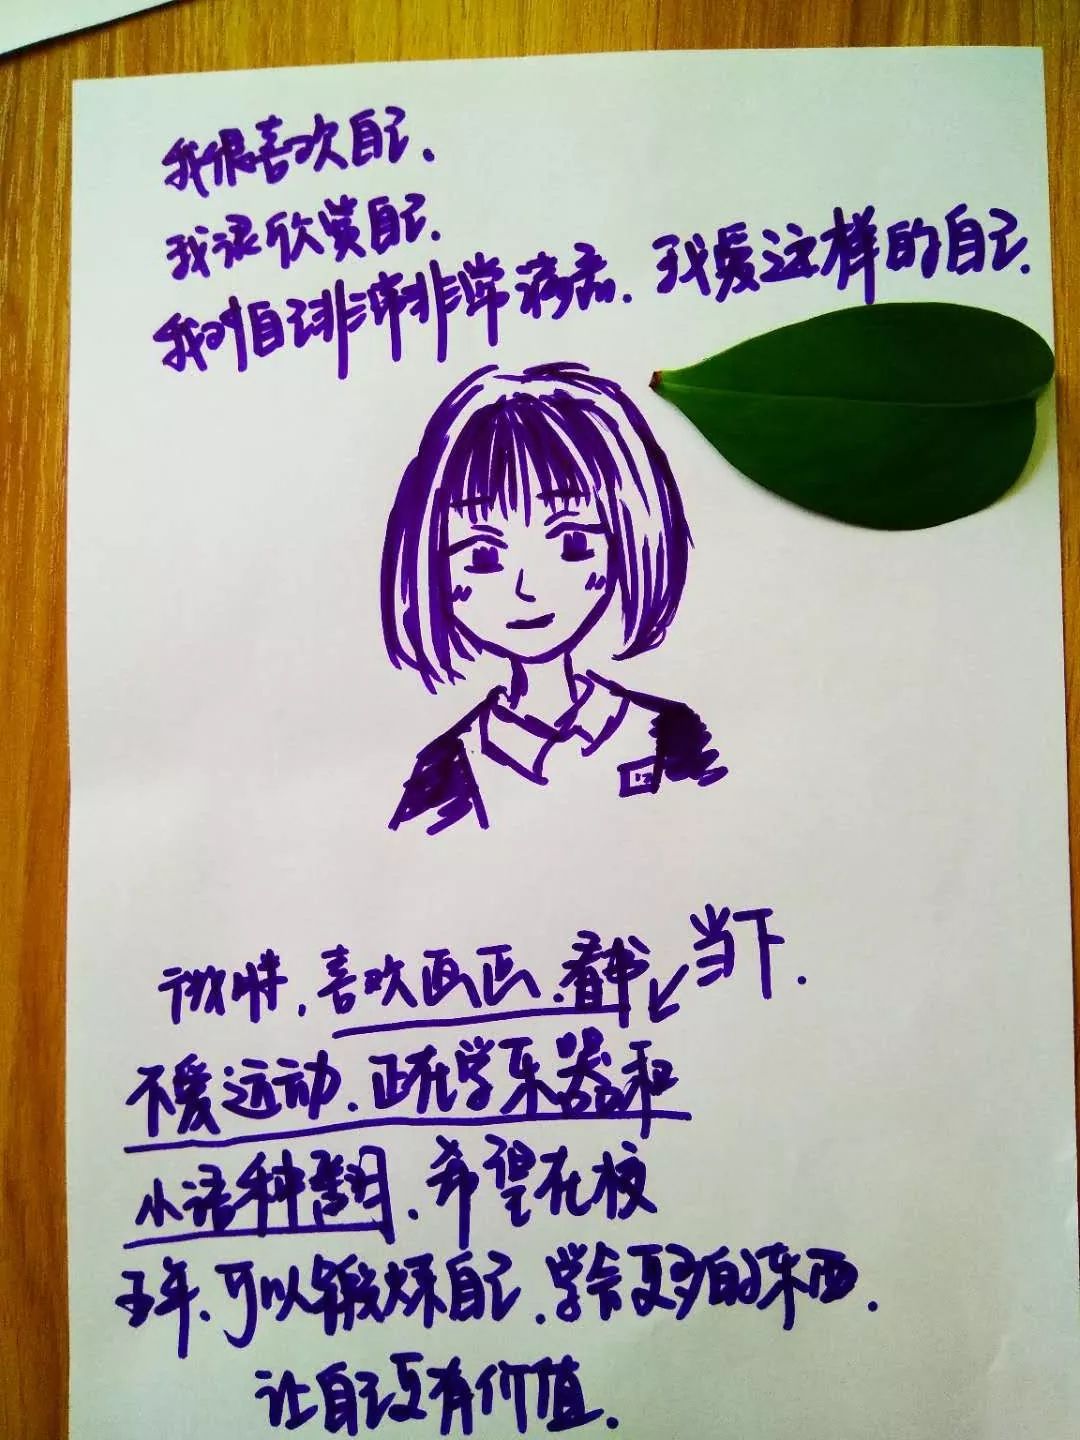 我很喜欢自己.
我很欣赏自己.
我对自己非常非常满意. 我爱这样的自己.
喜欢画画.看书 当下.
不爱运动.正在学乐器和
小语种翻. 希望在校
五年.可以锻炼自己.学会更多的东西.
让自己更有价值.